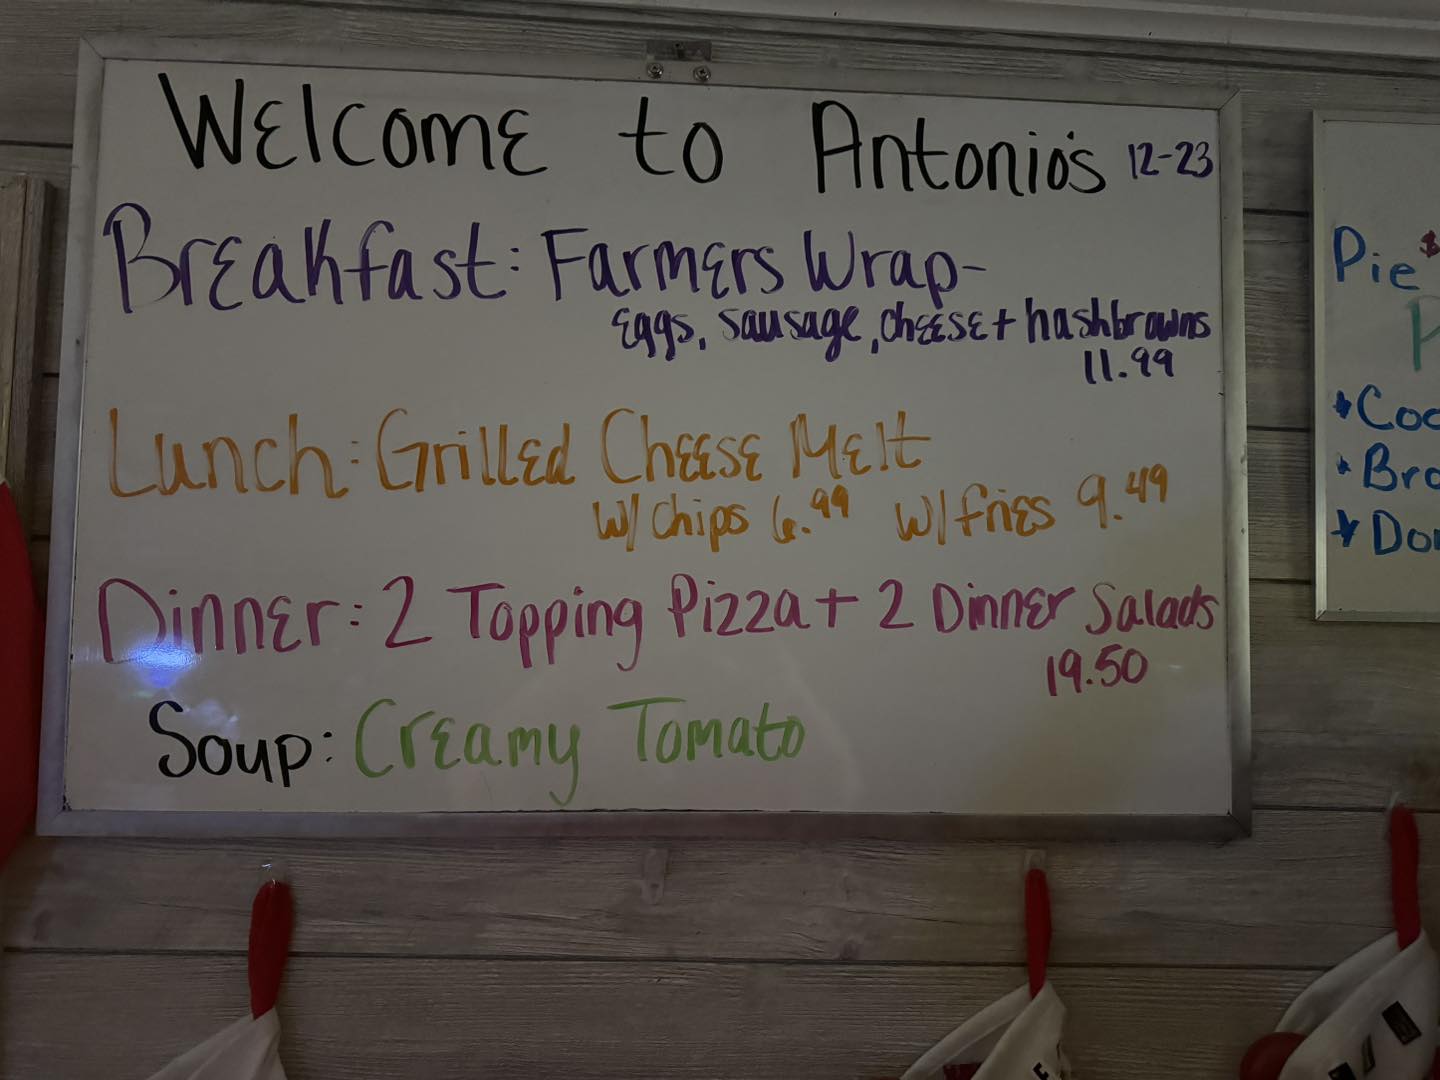 Welcome to Antonio's 12-23
Breakfast: Farmers Wrap-
eggs, sausage, cheese + hashbrowns
11.99
Lunch: Grilled Cheese Melt
w/ chips 6.99 w/ fries 9.49
Dinner: 2 Topping Pizza + 2 Dinner Salads
19.50
Soup: Creamy Tomato
Pie $